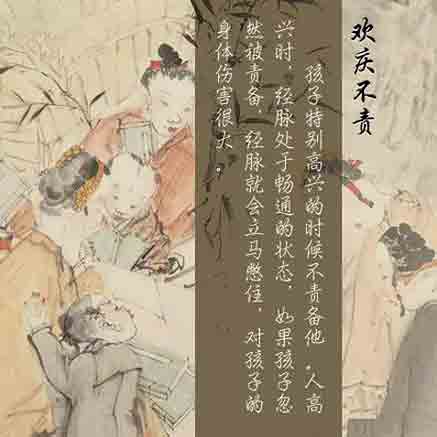 欢庆不责
孩子特别高兴的时候不责备他.人高
兴时，经脉处于畅通的状态，如果孩子忽
然被责备，经脉就会立马憋住，对孩子的
身体伤害很大。